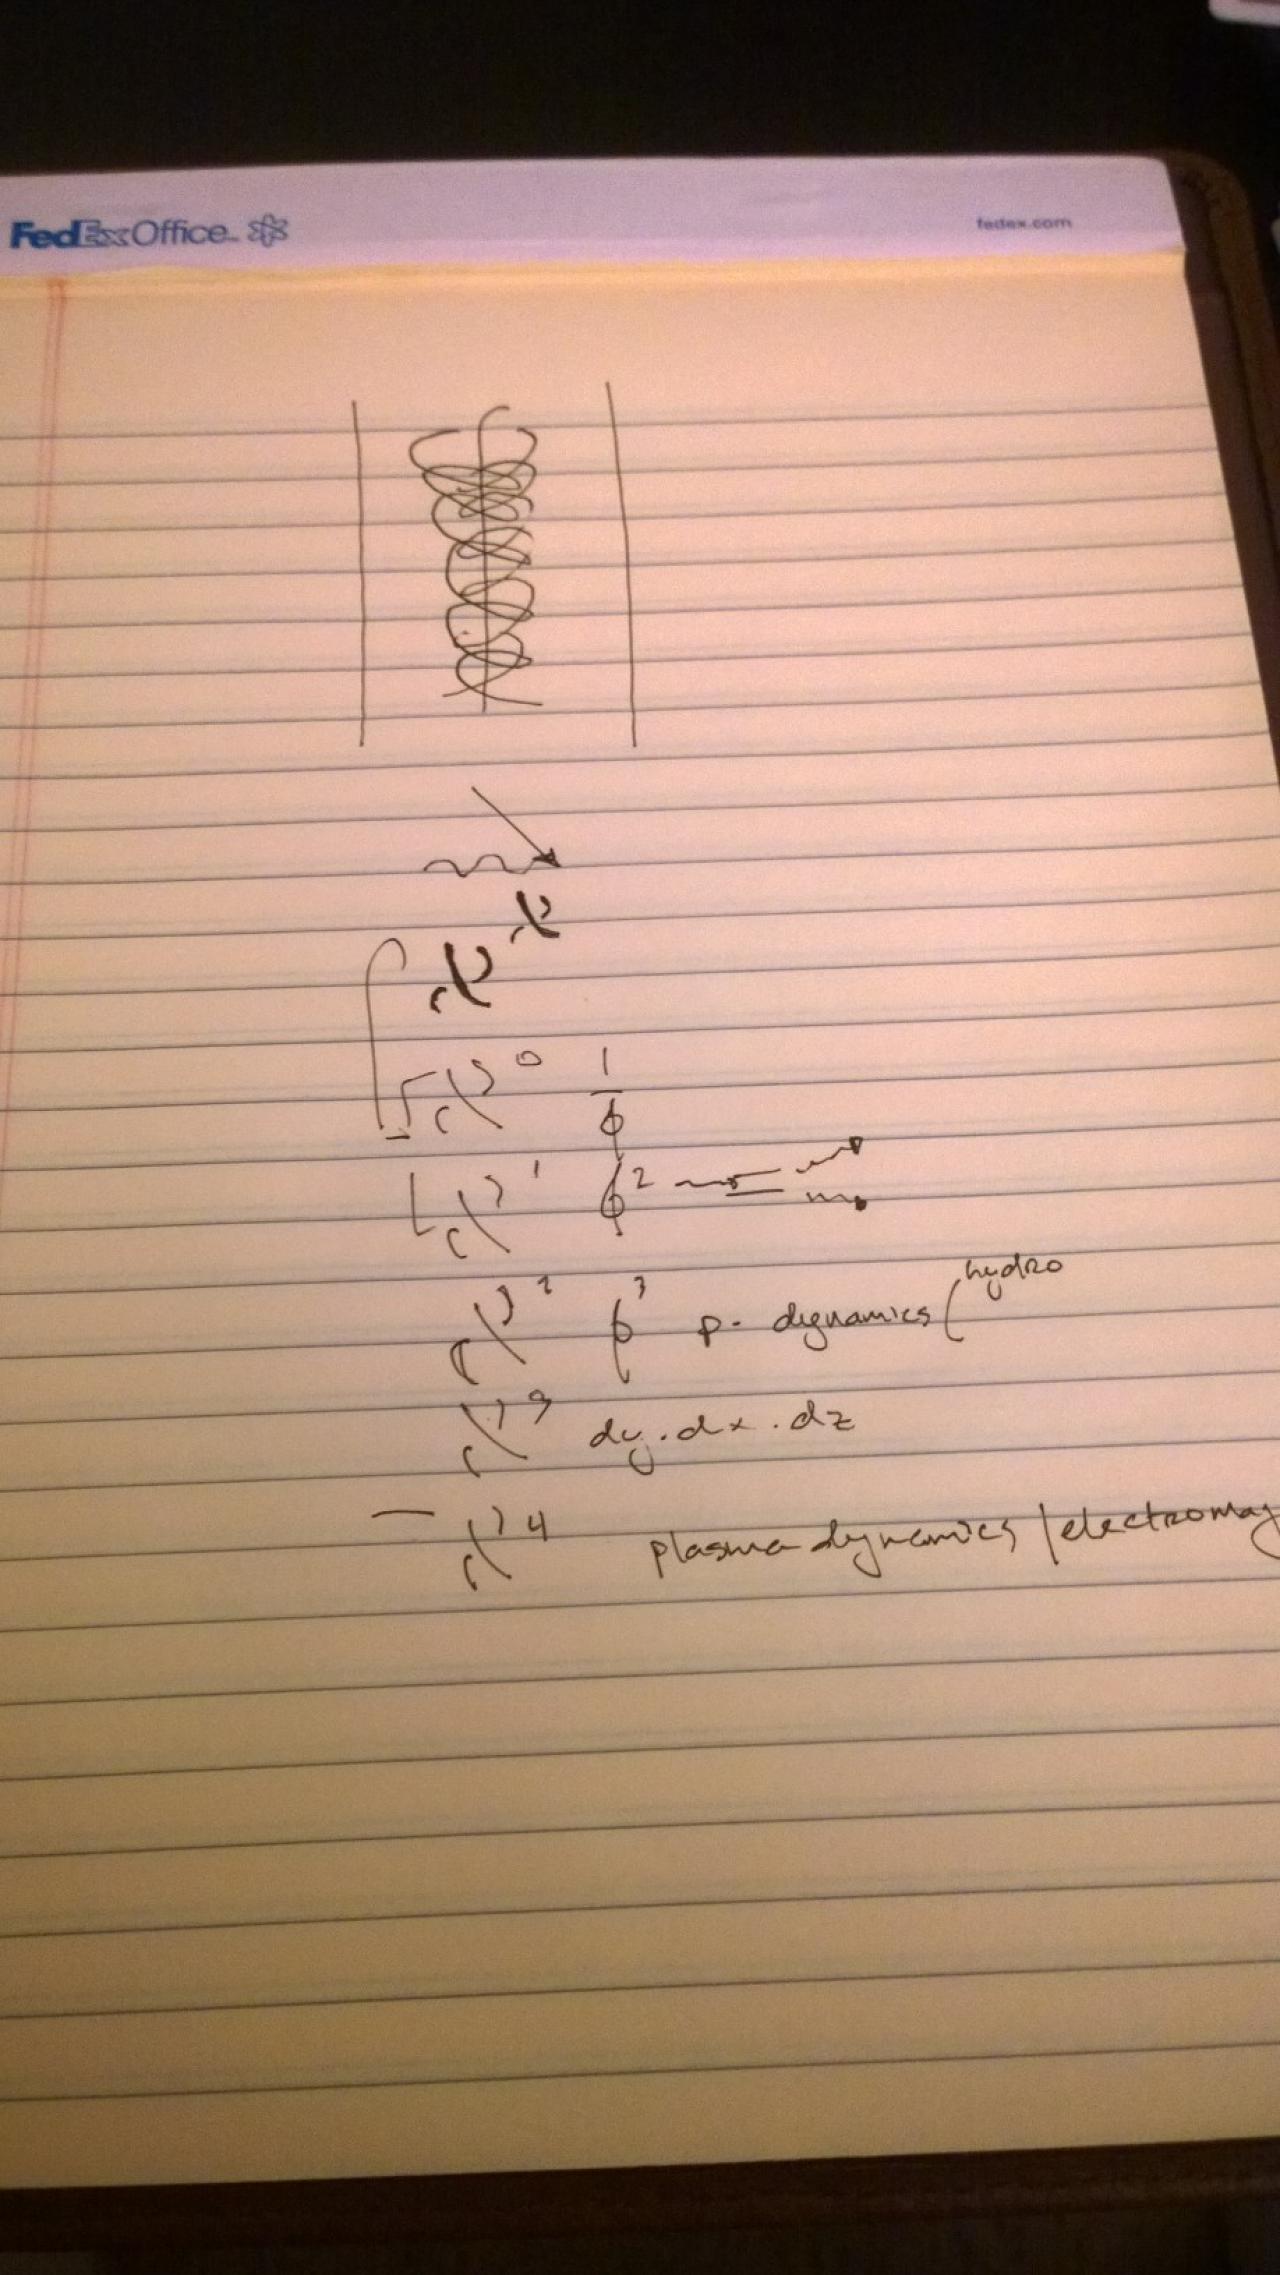 FedEx Office fedex.com
x x
x 0 1/ϕ
x 1 ϕ 2
x 2 ϕ 3 p. dynamics ( hydro
x 3 dy . dx . dz
x 4 plasma dynamics / electromag